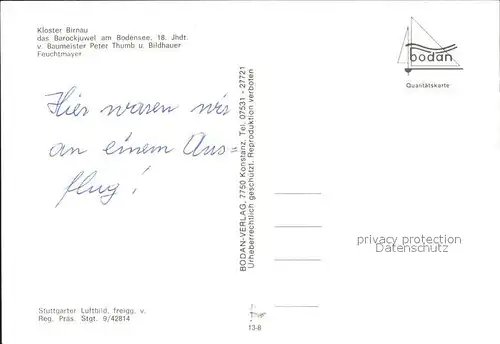 Kloster Birnau
das Barockjuwel am Bodensee, 18. Jhdt.
v. Baumeister Peter Thumb u. Bildhauer
Feuchtmayer
bodan
Qualitätskarte
Hier waren wir
an einem Aus=
flug!
BODAN-VERLAG, 7750 Konstanz, Tel. 07531 - 27721
Urheberrechtlich geschützt. Reproduktion verboten
privacy protection
DARABANTH.COM
Stuttgarter Luftbild, freigg. v.
Reg. Präs. Stgt. 9/42814
13-8